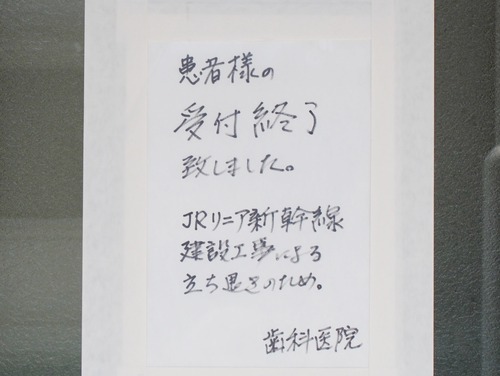 患者様の
受付終了
致しました。
JRリニア新幹線
建設工事による
立ち退きのため。
歯科医院